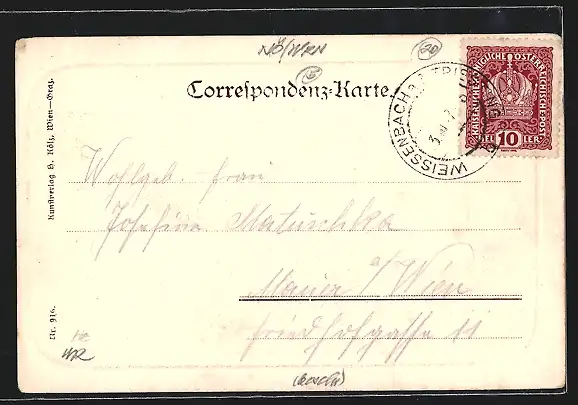 NÖ/WRN
20
Correspondenz-Karte.
KAISERLICHE KÖNIGLICHE ÖSTERREICHISCHE POST
10
HELLER
WEISSENBACH A.D. TRIESTING
Wohlgeb. Frau
Josefine Matuschka
Mauer a/Wien
Friedhofgasse 11
Kunstverlag H. Kölz, Wien—Graz.
Nr. 916.
WR